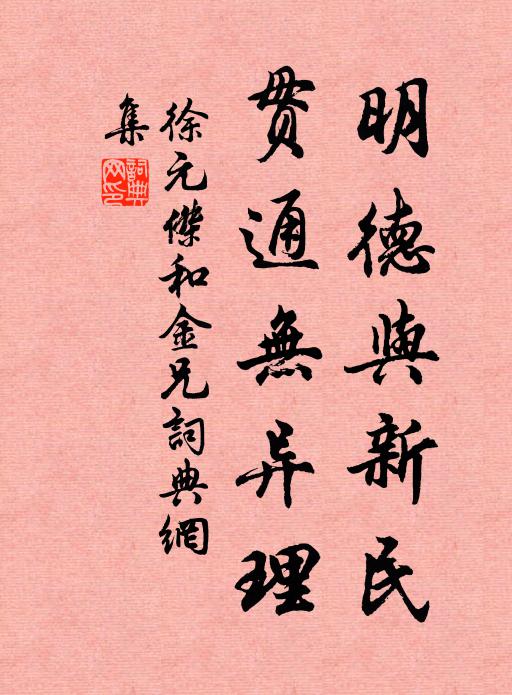 明德與新民
贯通無异理
徐元傑和金兄詞典網
集
詞典
网印